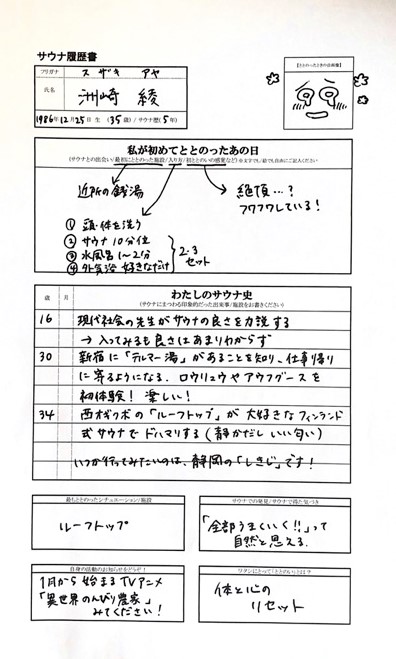 サウナ履歴書
フリガナ
スザキ アヤ
氏名
洲崎 綾
1986年12月25日生 (35歳) /サウナ歴(5年)
【ととのったときの自画像】
私が初めてととのったあの日
(サウナとの出会い/最初にととのった施設/入り方/初ととのいの感覚など)※文字でも/絵でも自由にご記入ください
近所の銭湯
絶頂…?
フワフワしている!
① 頭・体を洗う
② サウナ 10分位
③ 水風呂 1〜2分
④ 外気浴 好きなだけ
2・3
セット
わたしのサウナ史
歳 月
(サウナにまつわる印象的だった出来事/施設をお書きください)
16 現代社会の先生がサウナの良さを力説する
→ 入ってみるも良さはあまりわからず
30 新宿に「テルマー湯」があることを知り、仕事帰り
に寄るようになる。ロウリュウやアウフグースを
初体験! 楽しい!
34 西オギクボの「ルーフトップ」が大好きなフィンランド
式サウナでドハマリする(静かだし いい匂い)
いつか行ってみたいのは、静岡の「しきじ」です!
最もととのったシチュエーション/施設
ルーフトップ
サウナでの発見/サウナで得た気づき
「全部うまくいく!!」って
自然と思える。
自身の活動のお知らせをどうぞ!
1月から始まるTVアニメ
「異世界のんびり農家」
みてください!
ワタシにとって「ととのい」とは?
体と心の
リセット